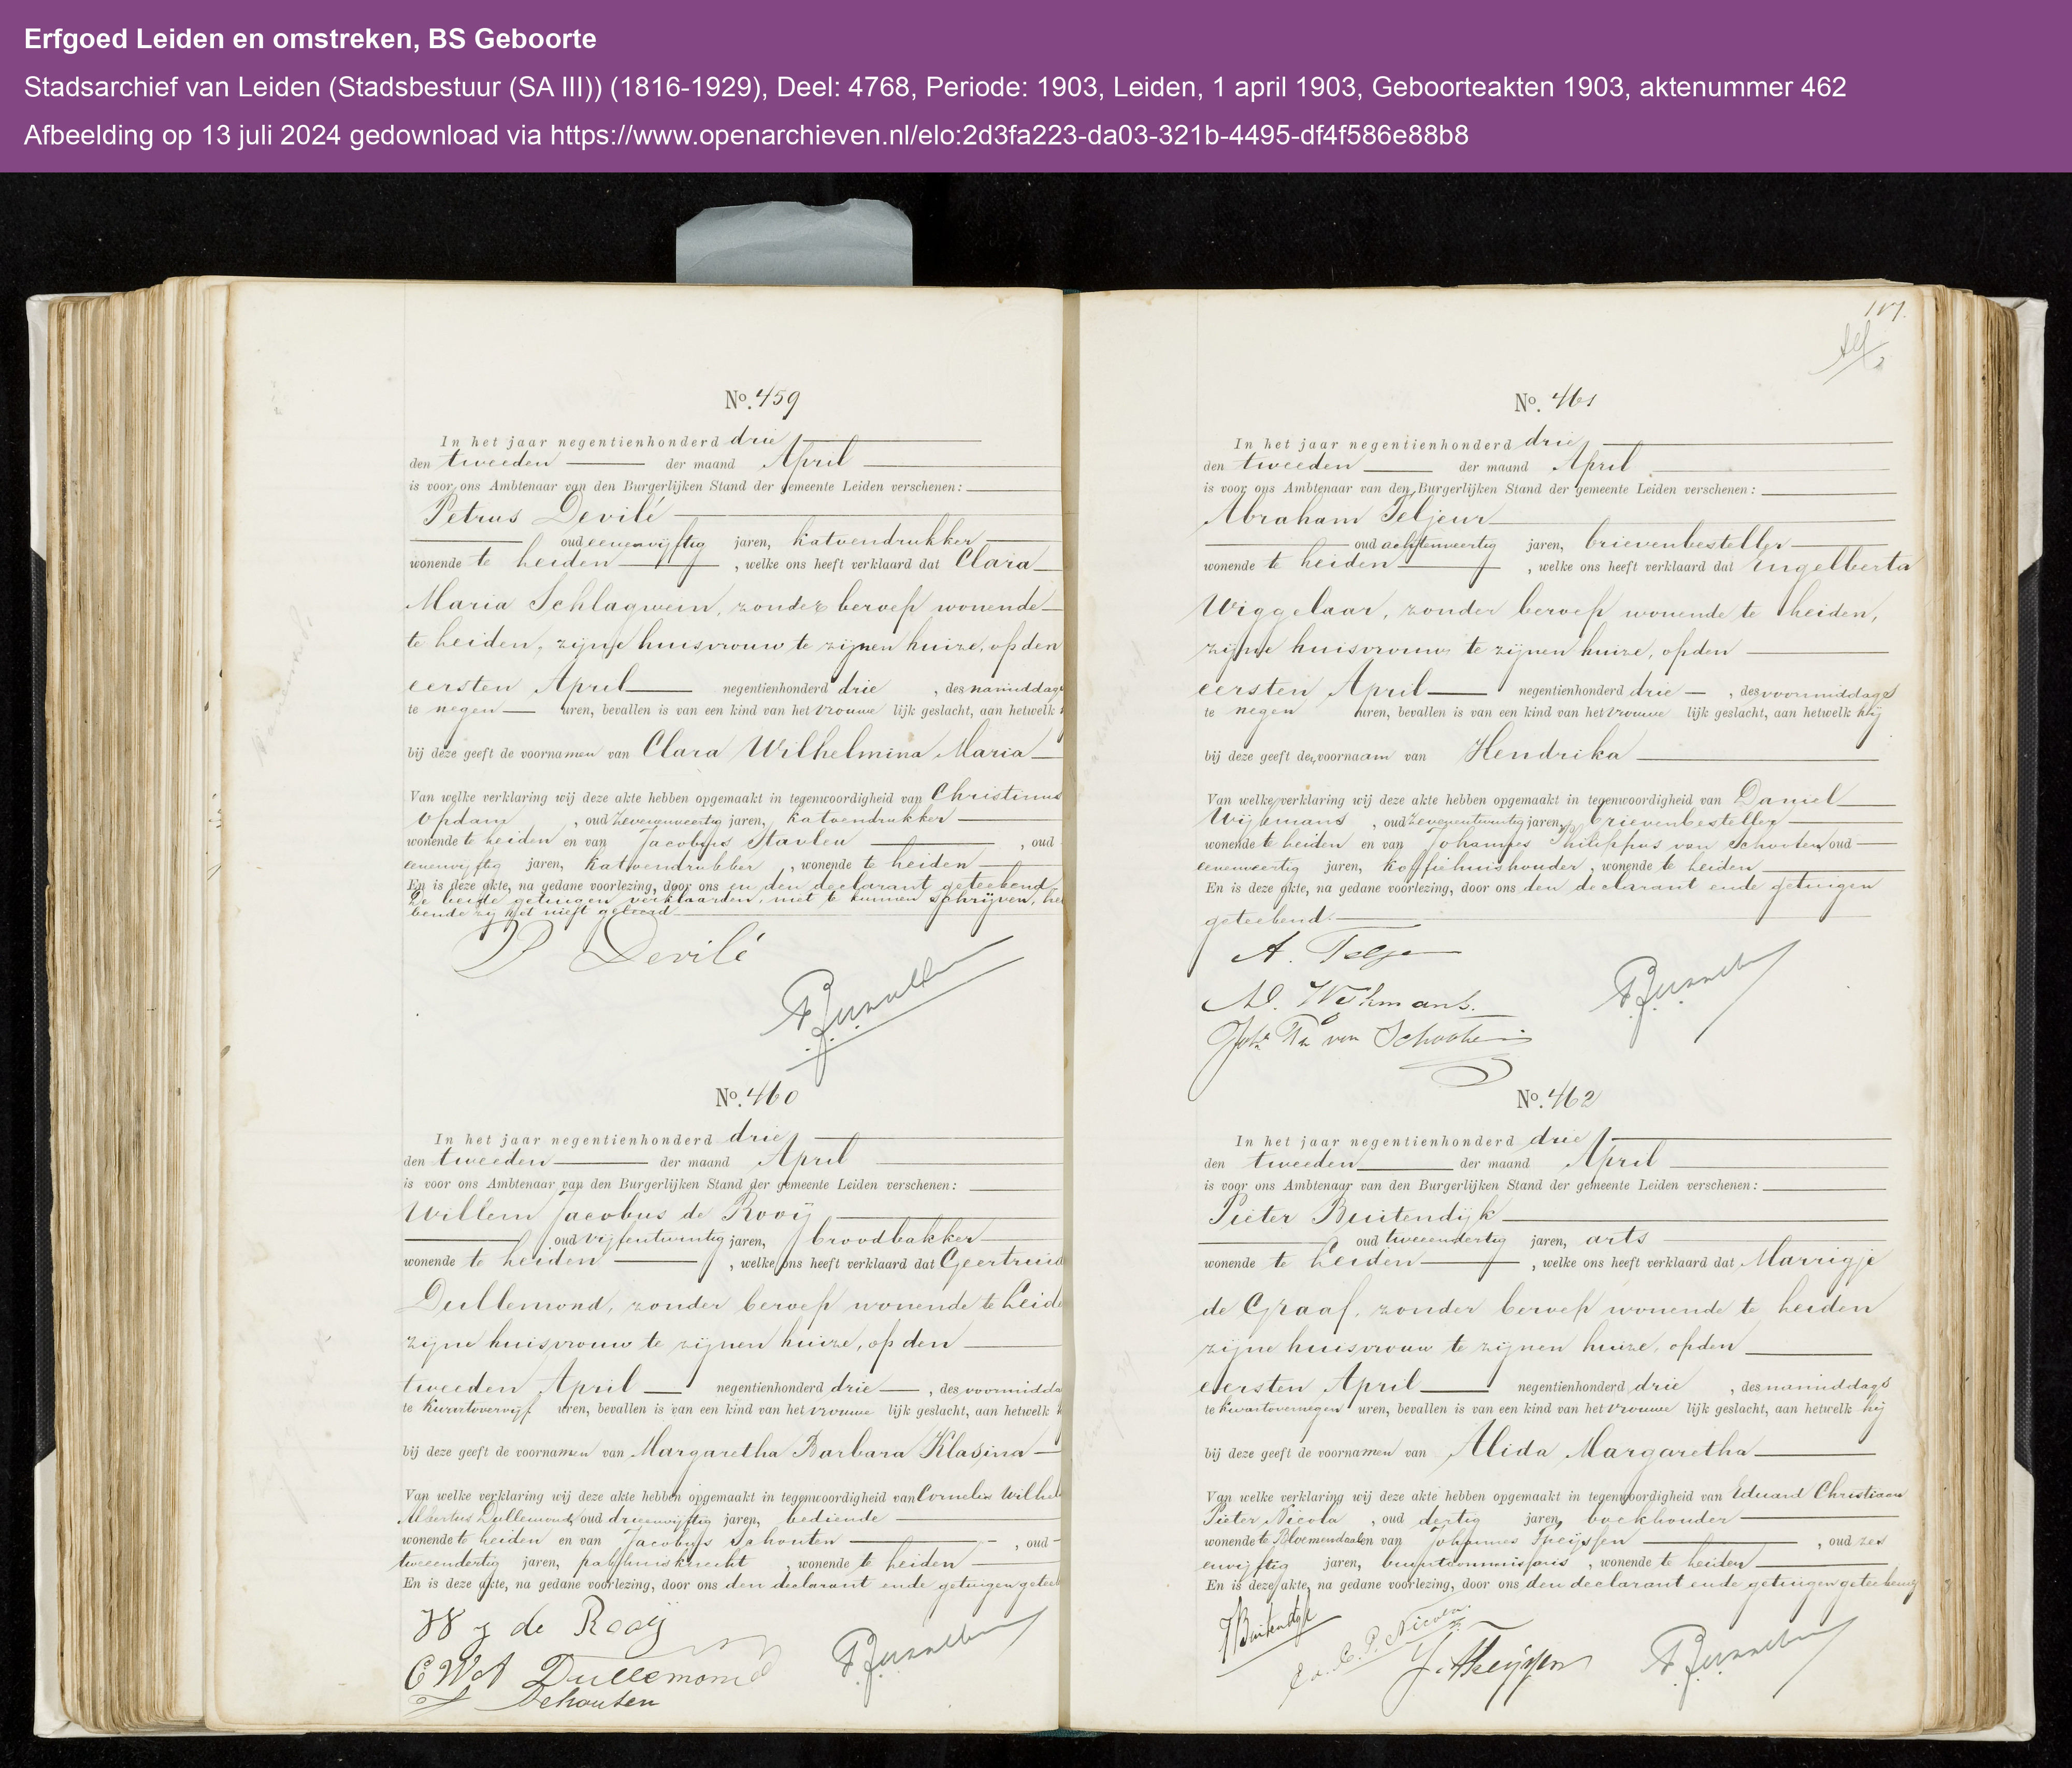 Erfgoed Leiden en omstreken, BS Geboorte
Stadsarchief van Leiden (Stadsbestuur (SA III)) (1816-1929), Deel: 4768, Periode: 1903, Leiden, 1 april 1903, Geboorteakten 1903, aktenummer 462
Afbeelding op 13 juli 2024 gedownload via https://www.openarchieven.nl/elo:2d3fa223-da03-321b-4495-df4f586e88b8
No. 459
In het jaar negentienhonderd drie
den tweeden der maand April
is voor ons Ambtenaar van den Burgerlijken Stand der gemeente Leiden verschenen:
Petrus Devilé
oud eenenvijftig jaren, katoendrukker
wonende te Leiden, welke ons heeft verklaard dat Clara
Maria Schlagwein, zonder beroep wonende
te Leiden, zijne huisvrouw te zijnen huize, op den
eersten April negentienhonderd drie, des namiddags
te negen uren, bevallen is van een kind van het vrouwelijk geslacht, aan hetwelk
bij deze geeft de voornamen van Clara Wilhelmina Maria
Van welke verklaring wij deze akte hebben opgemaakt in tegenwoordigheid van Christinus
Opdam, oud zevenenveertig jaren, katoendrukker
wonende te Leiden en van Jacobus Stavleu, oud
eenenvijftig jaren, katoendrukker, wonende te Leiden
En is deze akte, na gedane voorlezing, door ons en den declarant geteekend
De beide getuigen verklaarden, niet te kunnen schrijven, heb
bende zij het niet geleerd
P Devilé
No. 460
In het jaar negentienhonderd drie
den tweeden der maand April
is voor ons Ambtenaar van den Burgerlijken Stand der gemeente Leiden verschenen:
Willem Jacobus de Rooij
oud vijfentwintig jaren, broodbakker
wonende te Leiden, welke ons heeft verklaard dat Geertruid
Dullemond, zonder beroep wonende te Leide
zijne huisvrouw te zijnen huize, op den
tweeden April negentienhonderd drie, des voormidda
te kwartovervijf uren, bevallen is van een kind van het vrouwelijk geslacht, aan hetwelk
bij deze geeft de voornamen van Margaretha Barbara Klasina
Van welke verklaring wij deze akte hebben opgemaakt in tegenwoordigheid van Cornelis Wilhel
Albertus Dullemond, oud drieenvijftig jaren, bediende
wonende te Leiden en van Jacobus Schouten, oud
tweeendertig jaren, pakhuisknecht, wonende te Leiden
En is deze akte, na gedane voorlezing, door ons den declarant ende getuigen geteek
W J de Rooij
C W A Dullemond
J Schouten
117.
No. 461
In het jaar negentienhonderd drie
den tweeden der maand April
is voor ons Ambtenaar van den Burgerlijken Stand der gemeente Leiden verschenen:
Abraham Teljeur
oud achtenveertig jaren, brievenbesteller
wonende te Leiden, welke ons heeft verklaard dat Engelberta
Wiggelaar, zonder beroep wonende te Leiden,
zijne huisvrouw te zijnen huize, op den
eersten April negentienhonderd drie, des voormiddags
te negen uren, bevallen is van een kind van het vrouwelijk geslacht, aan hetwelk hij
bij deze geeft den voornaam van Hendrika
Van welke verklaring wij deze akte hebben opgemaakt in tegenwoordigheid van Daniel
Wijkmans, oud zevenentwintig jaren, brievenbesteller
wonende te Leiden en van Johannes Philippus van Schooten oud
eenenveertig jaren, koffiehuishouder, wonende te Leiden
En is deze akte, na gedane voorlezing, door ons den declarant ende getuigen
geteekend.
A. Teljeur
D. Wijkmans.
Joh. Ph van Schooten
No. 462
In het jaar negentienhonderd drie
den tweeden der maand April
is voor ons Ambtenaar van den Burgerlijken Stand der gemeente Leiden verschenen:
Pieter Buitendijk
oud tweeendertig jaren, arts
wonende te Leiden, welke ons heeft verklaard dat Marrigje
de Graaf, zonder beroep wonende te Leiden
zijne huisvrouw te zijnen huize, op den
eersten April negentienhonderd drie, des namiddags
te kwartovernegen uren, bevallen is van een kind van het vrouwelijk geslacht, aan hetwelk hij
bij deze geeft de voornamen van Alida Margaretha
Van welke verklaring wij deze akte hebben opgemaakt in tegenwoordigheid van Eduard Christiaan
Pieter Nicola, oud dertig jaren, boekhouder
wonende te Bloemendaal en van Johannes Theijssen, oud zes
envijftig jaren, buurtcommissaris, wonende te Leiden
En is deze akte, na gedane voorlezing, door ons den declarant ende getuigen geteekend
PBuitendijk
E. C. P. Nicola.
J. Theijssen